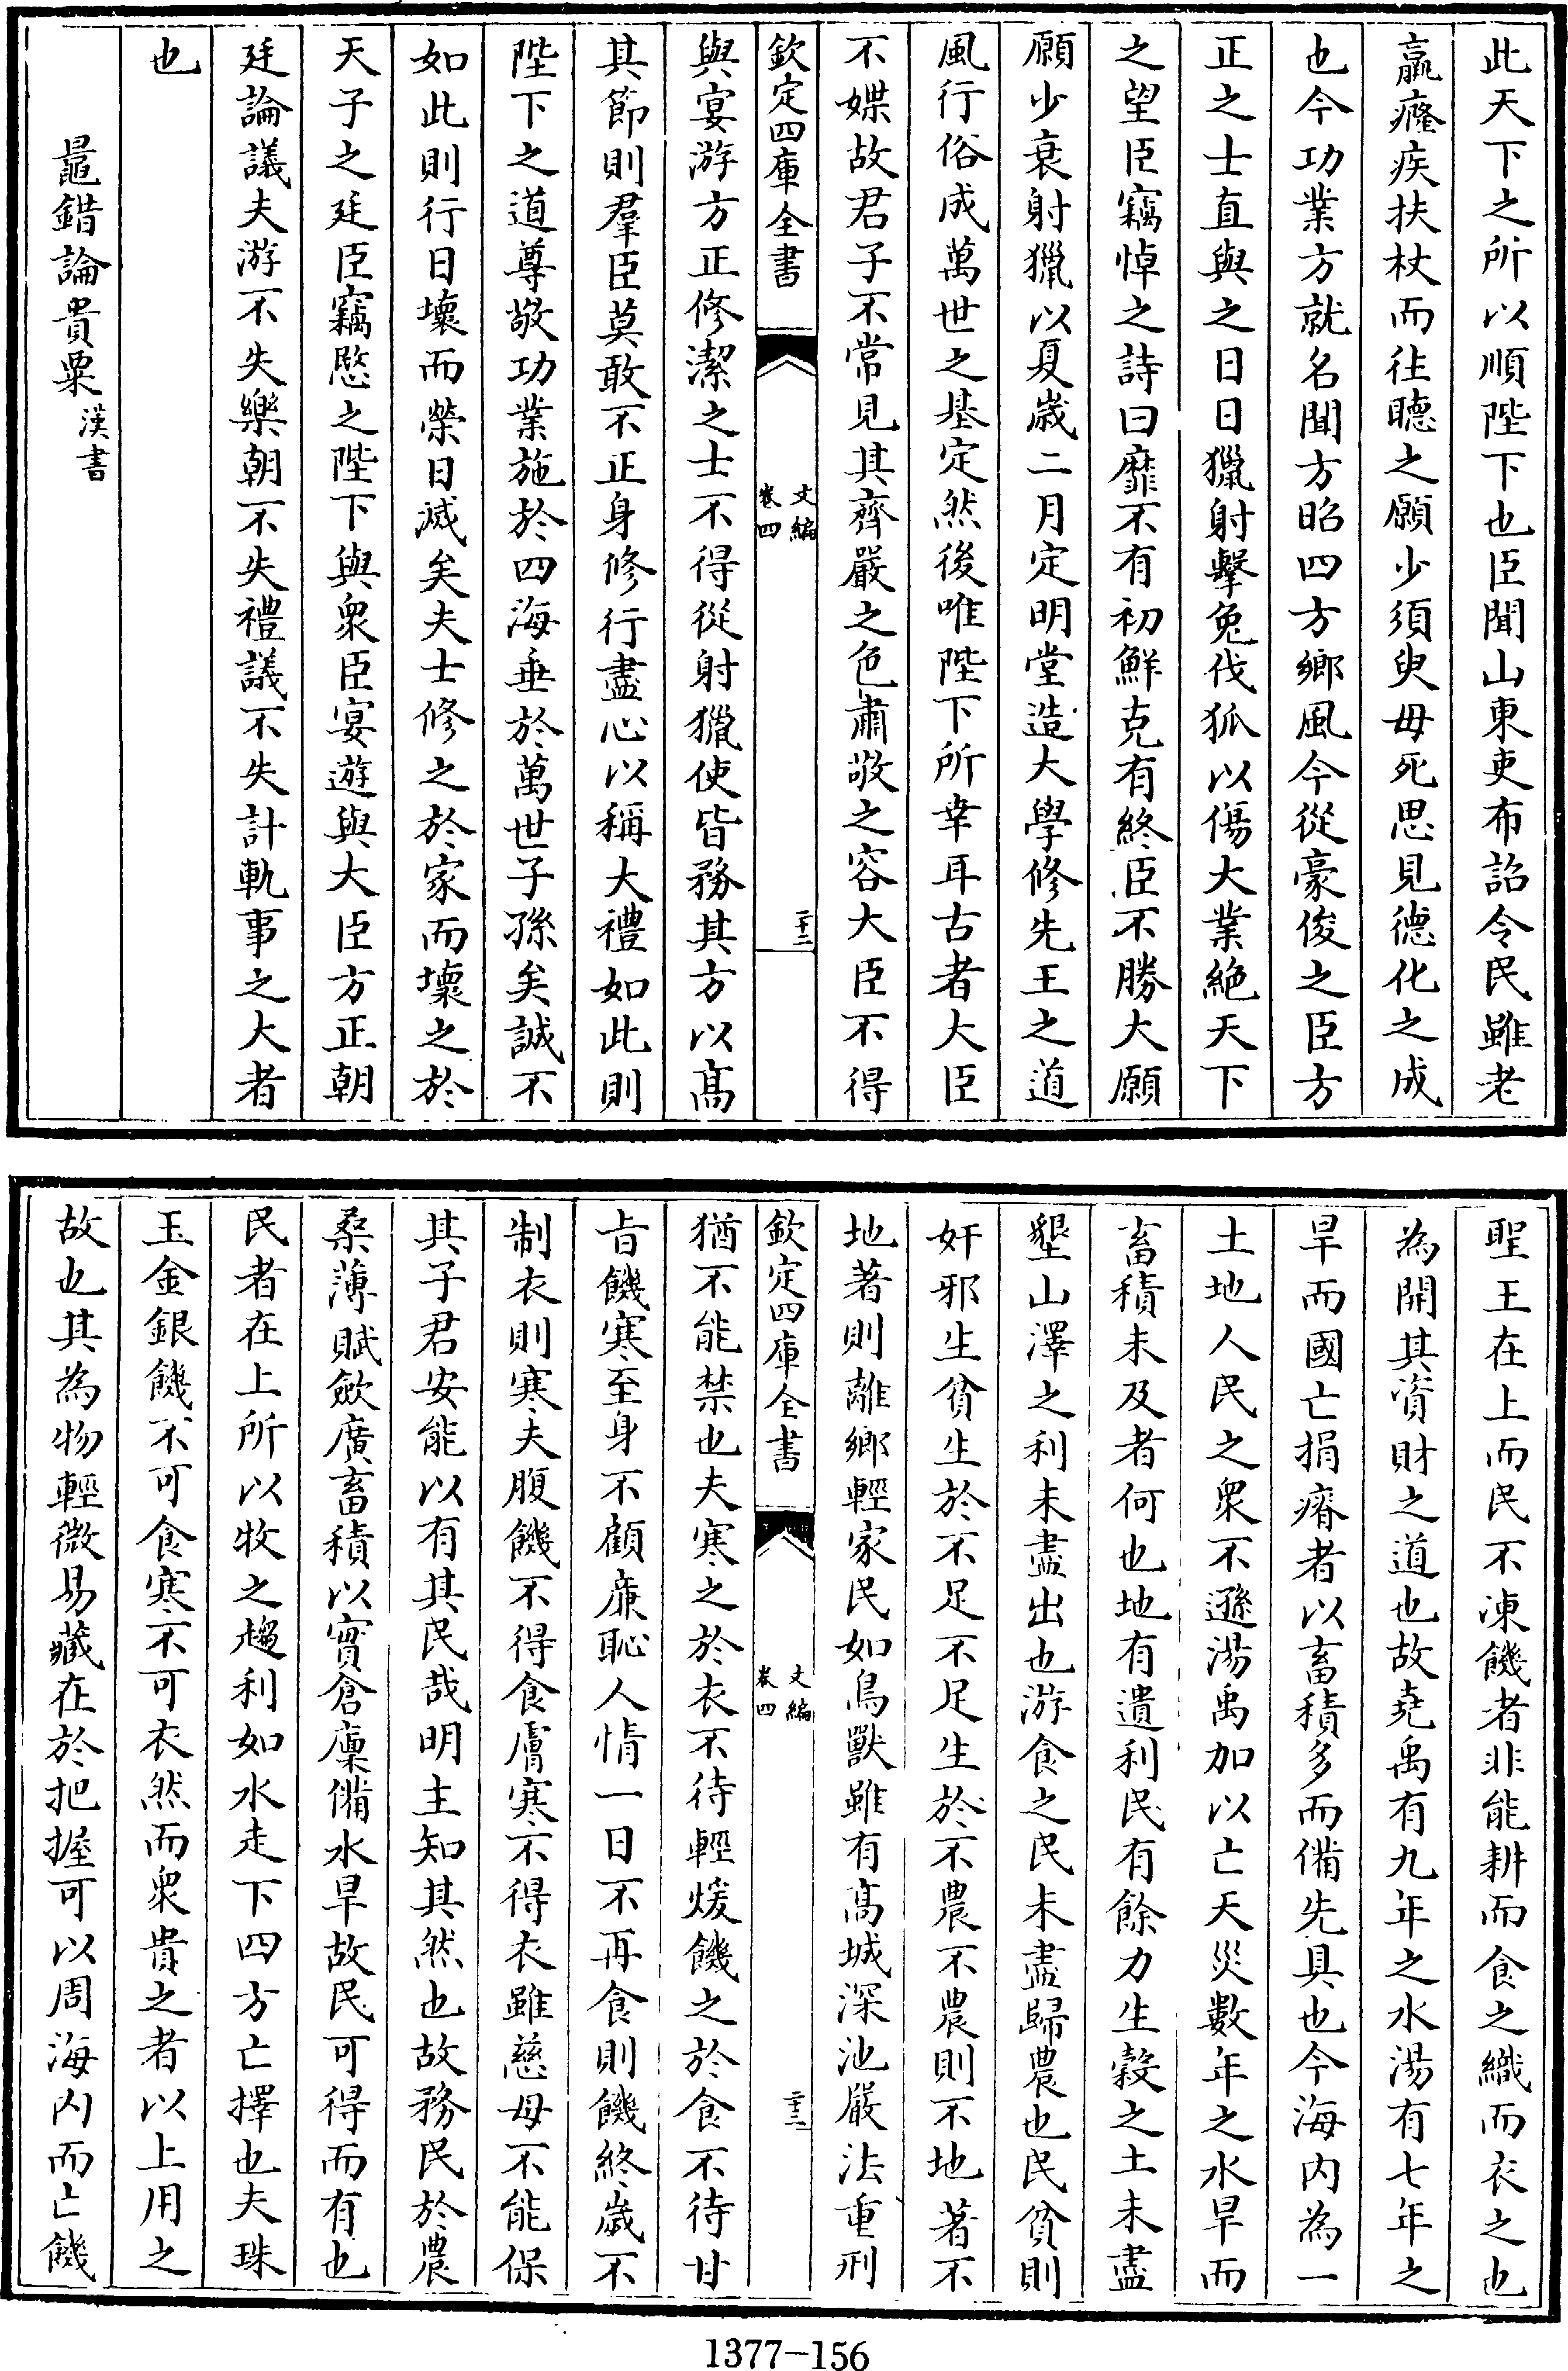 此天下之所以順陛下也臣聞山東吏布詔令民雖老
羸癃疾扶杖而往聽之願少須臾毋死思見德化之成
也今功業方就名聞方昭四方鄉風今從豪俊之臣方
正之士直與之日日獵射擊兔伐狐以傷大業絶天下
之望臣竊悼之詩曰靡不有初鮮克有終臣不勝大願
願少衰射獵以夏歳二月定明堂造大學修先王之道
風行俗成萬世之基定然後唯陛下所幸耳古者大臣
不媟故君子不常見其齊嚴之色肅敬之容大臣不得
欽定四庫全書
文編
卷四
二十二
與宴游方正修潔之士不得從射獵使皆務其方以髙
其節則羣臣莫敢不正身修行盡心以稱大禮如此則
陛下之道尊敬功業施於四海垂於萬世子孫矣誠不
如此則行日壞而榮日滅矣夫士修之於家而壞之於
天子之廷臣竊愍之陛下與衆臣宴遊與大臣方正朝
廷論議夫游不失樂朝不失禮議不失計軌事之大者
也
鼂錯論貴粟 漢書
聖王在上而民不凍饑者非能耕而食之織而衣之也
為開其資財之道也故堯禹有九年之水湯有七年之
旱而國亡捐瘠者以畜積多而備先具也今海内為一
土地人民之衆不遜湯禹加以亡天災數年之水旱而
畜積未及者何也地有遺利民有餘力生穀之土未盡
墾山澤之利未盡出也游食之民未盡歸農也民貧則
奸邪生貧生於不足不足生於不農不農則不地著不
地著則離鄉輕家民如鳥獸雖有髙城深池嚴法重刑
欽定四庫全書
文編
卷四
二十三
猶不能禁也夫寒之於衣不待輕煖饑之於食不待甘
旨饑寒至身不顧廉恥人情一日不再食則饑終歳不
制衣則寒夫腹饑不得食膚寒不得衣雖慈母不能保
其子君安能以有其民哉明主知其然也故務民於農
桑薄賦斂廣畜積以實倉廩備水旱故民可得而有也
民者在上所以牧之趨利如水走下四方亡擇也夫珠
玉金銀饑不可食寒不可衣然而衆貴之者以上用之
故也其為物輕微易藏在於把握可以周海内而亡饑
1377-156